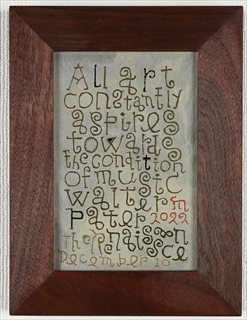 All art
constantly
aspires
towards
the condition
of music
Walter m
Pater 2022
The Renaissance
December 18